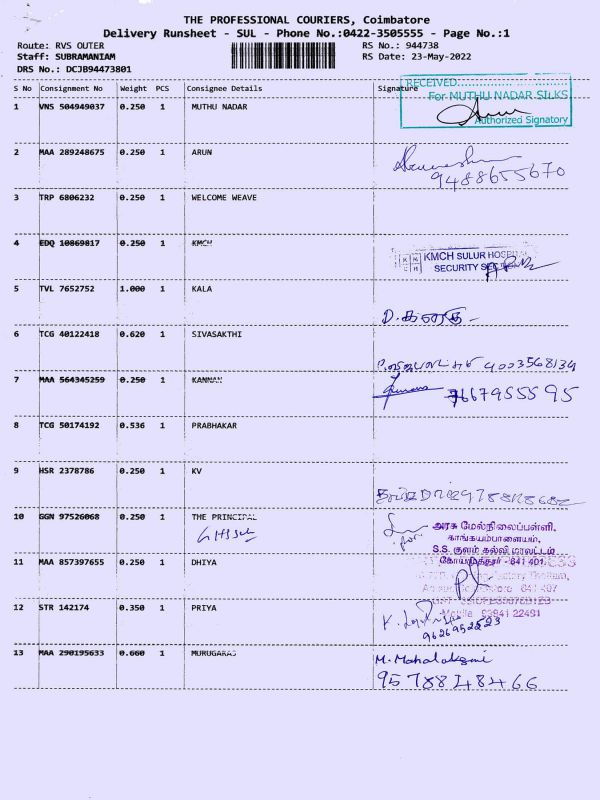 THE PROFESSIONAL COURIERS, Coimbatore
Delivery Runsheet - SUL - Phone No.:0422-3505555 - Page No.:1
Route: RVS OUTER RS No.: 944738
Staff: SUBRAMANIAM RS Date: 23-May-2022
DRS No.: DCJB94473801
S No Consignment No Weight PCS Consignee Details Signature
RECEIVED
For MUTHU NADAR SILKS
Authorized Signatory
1 VNS 504949037 0.250 1 MUTHU NADAR
2 MAA 289248675 0.250 1 ARUN
9488655670
3 TRP 6806232 0.250 1 WELCOME WEAVE
4 EDQ 10869817 0.250 1 KMCH
KMCH SULUR HOSPITAL
SECURITY SECTION
5 TVL 7652752 1.000 1 KALA
6 TCG 40122418 0.620 1 SIVASAKTHI
9003568134
7 MAA 564345259 0.250 1 KANNAN
8 TCG 50174192 0.536 1 PRABHAKAR
9 HSR 2378786 0.250 1 KV
10 GGN 97526068 0.250 1 THE PRINCIPAL
for
அரசு மேல்நிலைப்பள்ளி,
காங்கயம்பாளையம்,
S.S. குளம் கல்வி மாவட்டம்
கோயமுத்தூர் - 641 401.
11 MAA 857397655 0.250 1 DHIYA
12 STR 142174 0.350 1 PRIYA
Mobile 93641 22491
9626952523
13 MAA 290195633 0.660 1 MURUGARAJ
M. Mahalakshmi
9578848466